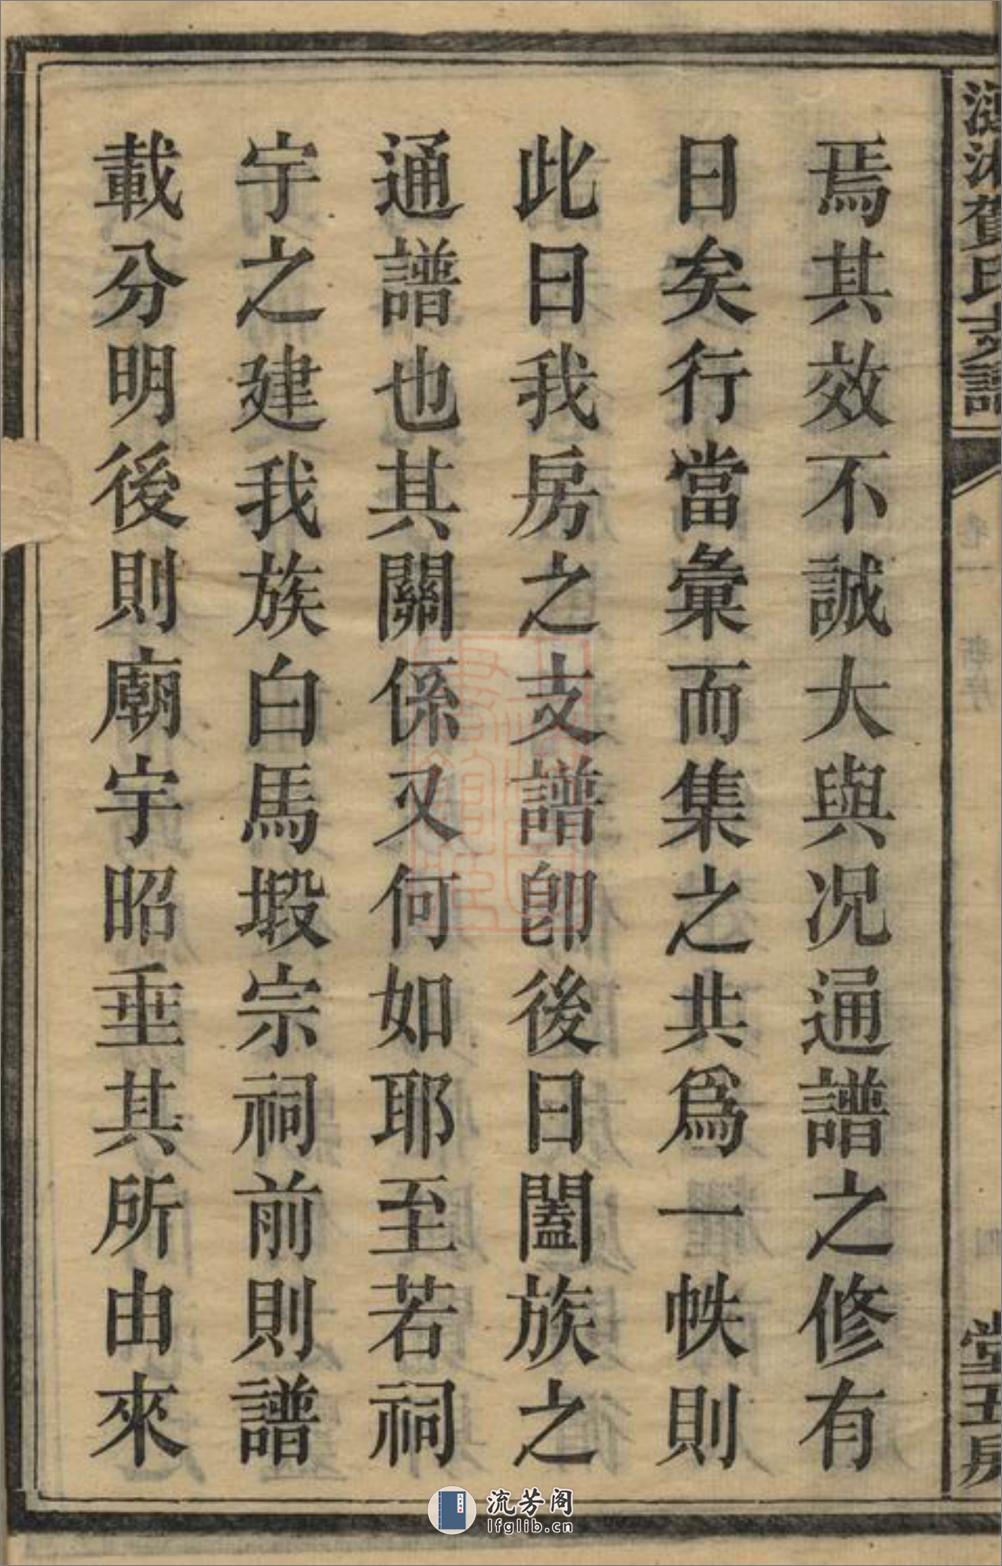 賀氏支譜
堂五房
焉其效不誠大與況通譜之修有
日矣行當彙而集之共爲一帙則
此日我房之支譜卽後日闔族之
通譜也其關係又何如耶至若祠
宇之建我族白馬塅宗祠前則譜
載分明後則廟宇昭垂其所由來
流芳阁
lfglib.cn